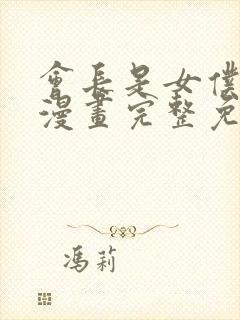 會長是女僕
漫畫完整免
馮莉